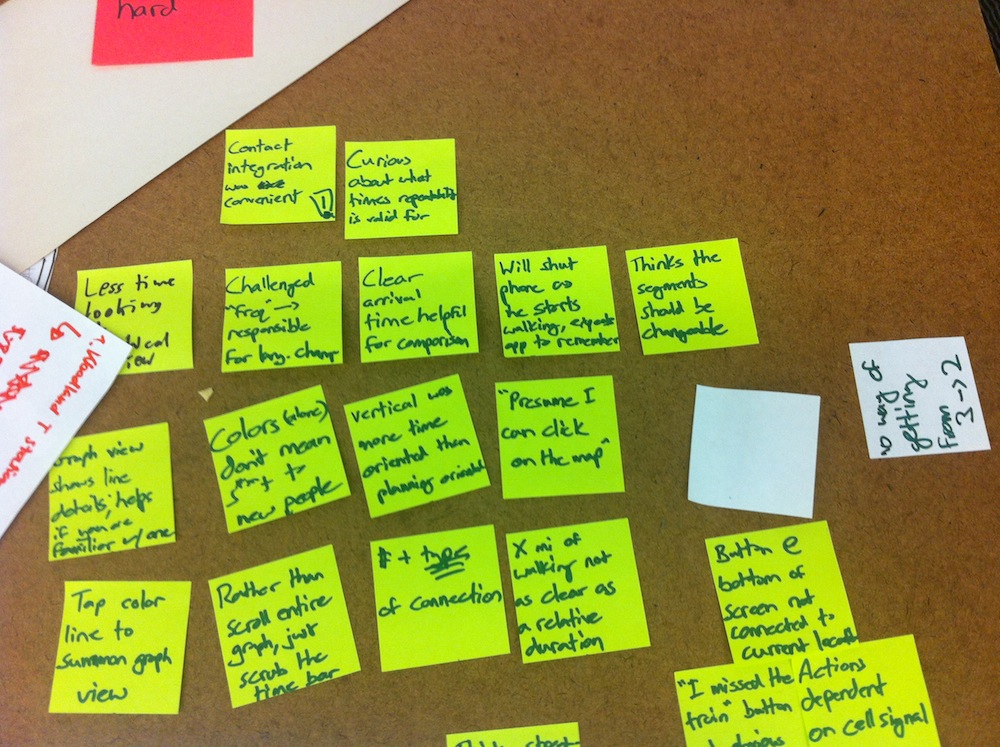 hard
Contact
integration
was
convenient
!
Curious
about what
times repeatability
is valid for
Less time
looking
Challenged
"freq" →
responsible
for lang. change
Clear
arrival
time helpful
for comparison
Will shut
phone as
he starts
walking, expects
app to remember
Thinks the
segments
should be
changeable
graph view
shows line
details; helps
if you are
familiar w/ one
Colors (alone)
don't mean
to
new people
vertical was
more time
oriented than
planning oriented
"Presume I
can click
on the map"
getting
from
3 → 2
Tap color
line to
summon graph
view
Rather than
scroll entire
graph, just
scrub the
time bar
# + type
of connection
X mi of
walking not
as clear as
a relative
duration
Button @
bottom of
screen not
connected to
current locat
"I missed the
train" button
Actions
dependent
on cell signal
1. Woodland T station